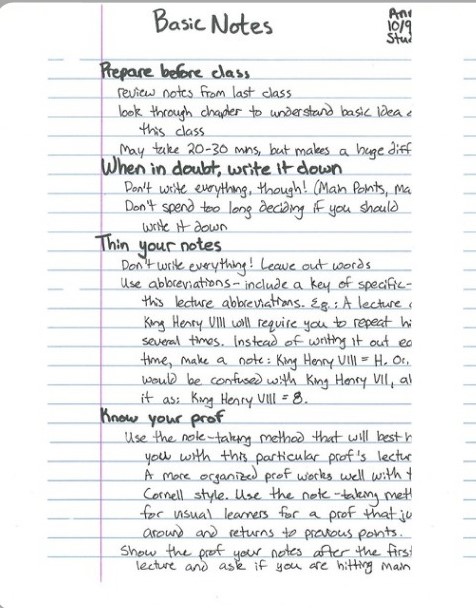 Basic Notes
Ann
10/9
Stud
Prepare before class
review notes from last class
look through chapter to understand basic idea
this class
May take 20-30 mns, but makes a huge diff
When in doubt, write it down
Don't write everything, though! (Main Points, ma
Don't spend too long deciding if you should
write it down
Thin your notes
Don't write everything! Leave out words
Use abbreviations - include a key of specific-
this lecture abbreviations. Eg.: A lecture
King Henry VIII will require you to repeat hi
several times. Instead of writing it out ea
time, make a note: King Henry VIII = H. Or,
would be confused with King Henry VII, al
it as: King Henry VIII = 8.
Know your prof
Use the note-taking method that will best h
you with this particular prof's lectur
A more organized prof works well with t
Cornell style. Use the note-taking met
for visual learners for a prof that ju
around and returns to previous points.
Show the prof your notes after the first
lecture and ask if you are hitting main